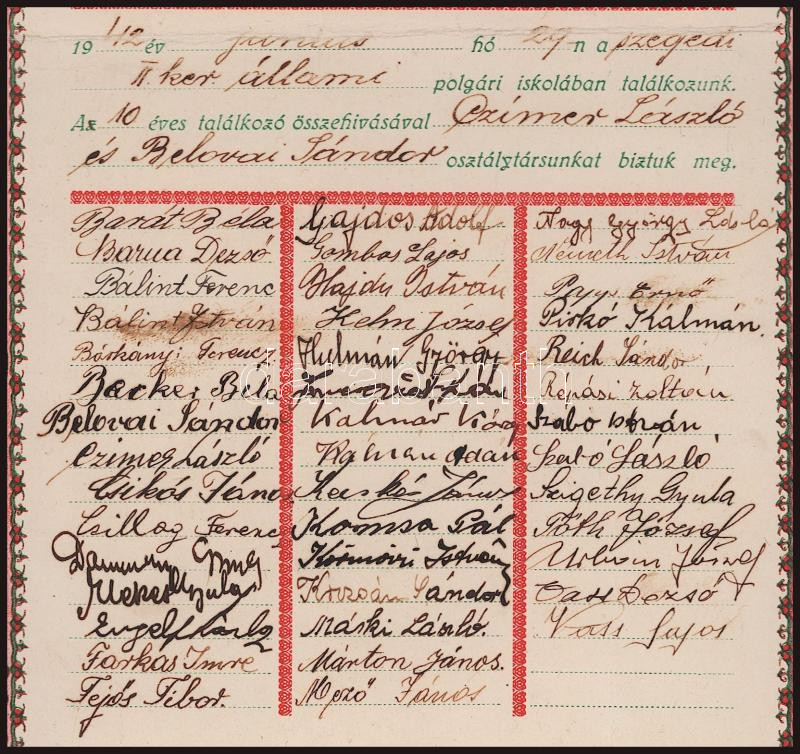 1942 év junius hó 29 n a szegedi
II ker. állami polgári iskolában találkozunk.
Az 10 éves találkozó összehivásával Czímer László
és Belovai Sándor osztálytársunkat biztuk meg.
Barát Béla
Barna Dezső
Bálint Ferenc
Bálint István
Bárkányi Ferenc
Becker Béla
Belovai Sándor
Czímer László
Csikós János
Csillag Ferenc
György
Gyula
Engel
Farkas Imre
Fejős Tibor.
Gajdos Adolf
Gombos Lajos
Hajdu István
Kehn József
Hulmán György
Kalmár
Kálmán Ádám
János
Komsa Pál
István
Sándor
Máski László.
Márton János.
Mező János
Nagy György László
Németh István
Papp Ernő
Pirkó Kálmán.
Reich Sándor
Repási Zoltán
Szabó István
Szabó László
Szigethy Gyula
Tóth József
József
Vass Dezső
Vass Lajos
darabanth